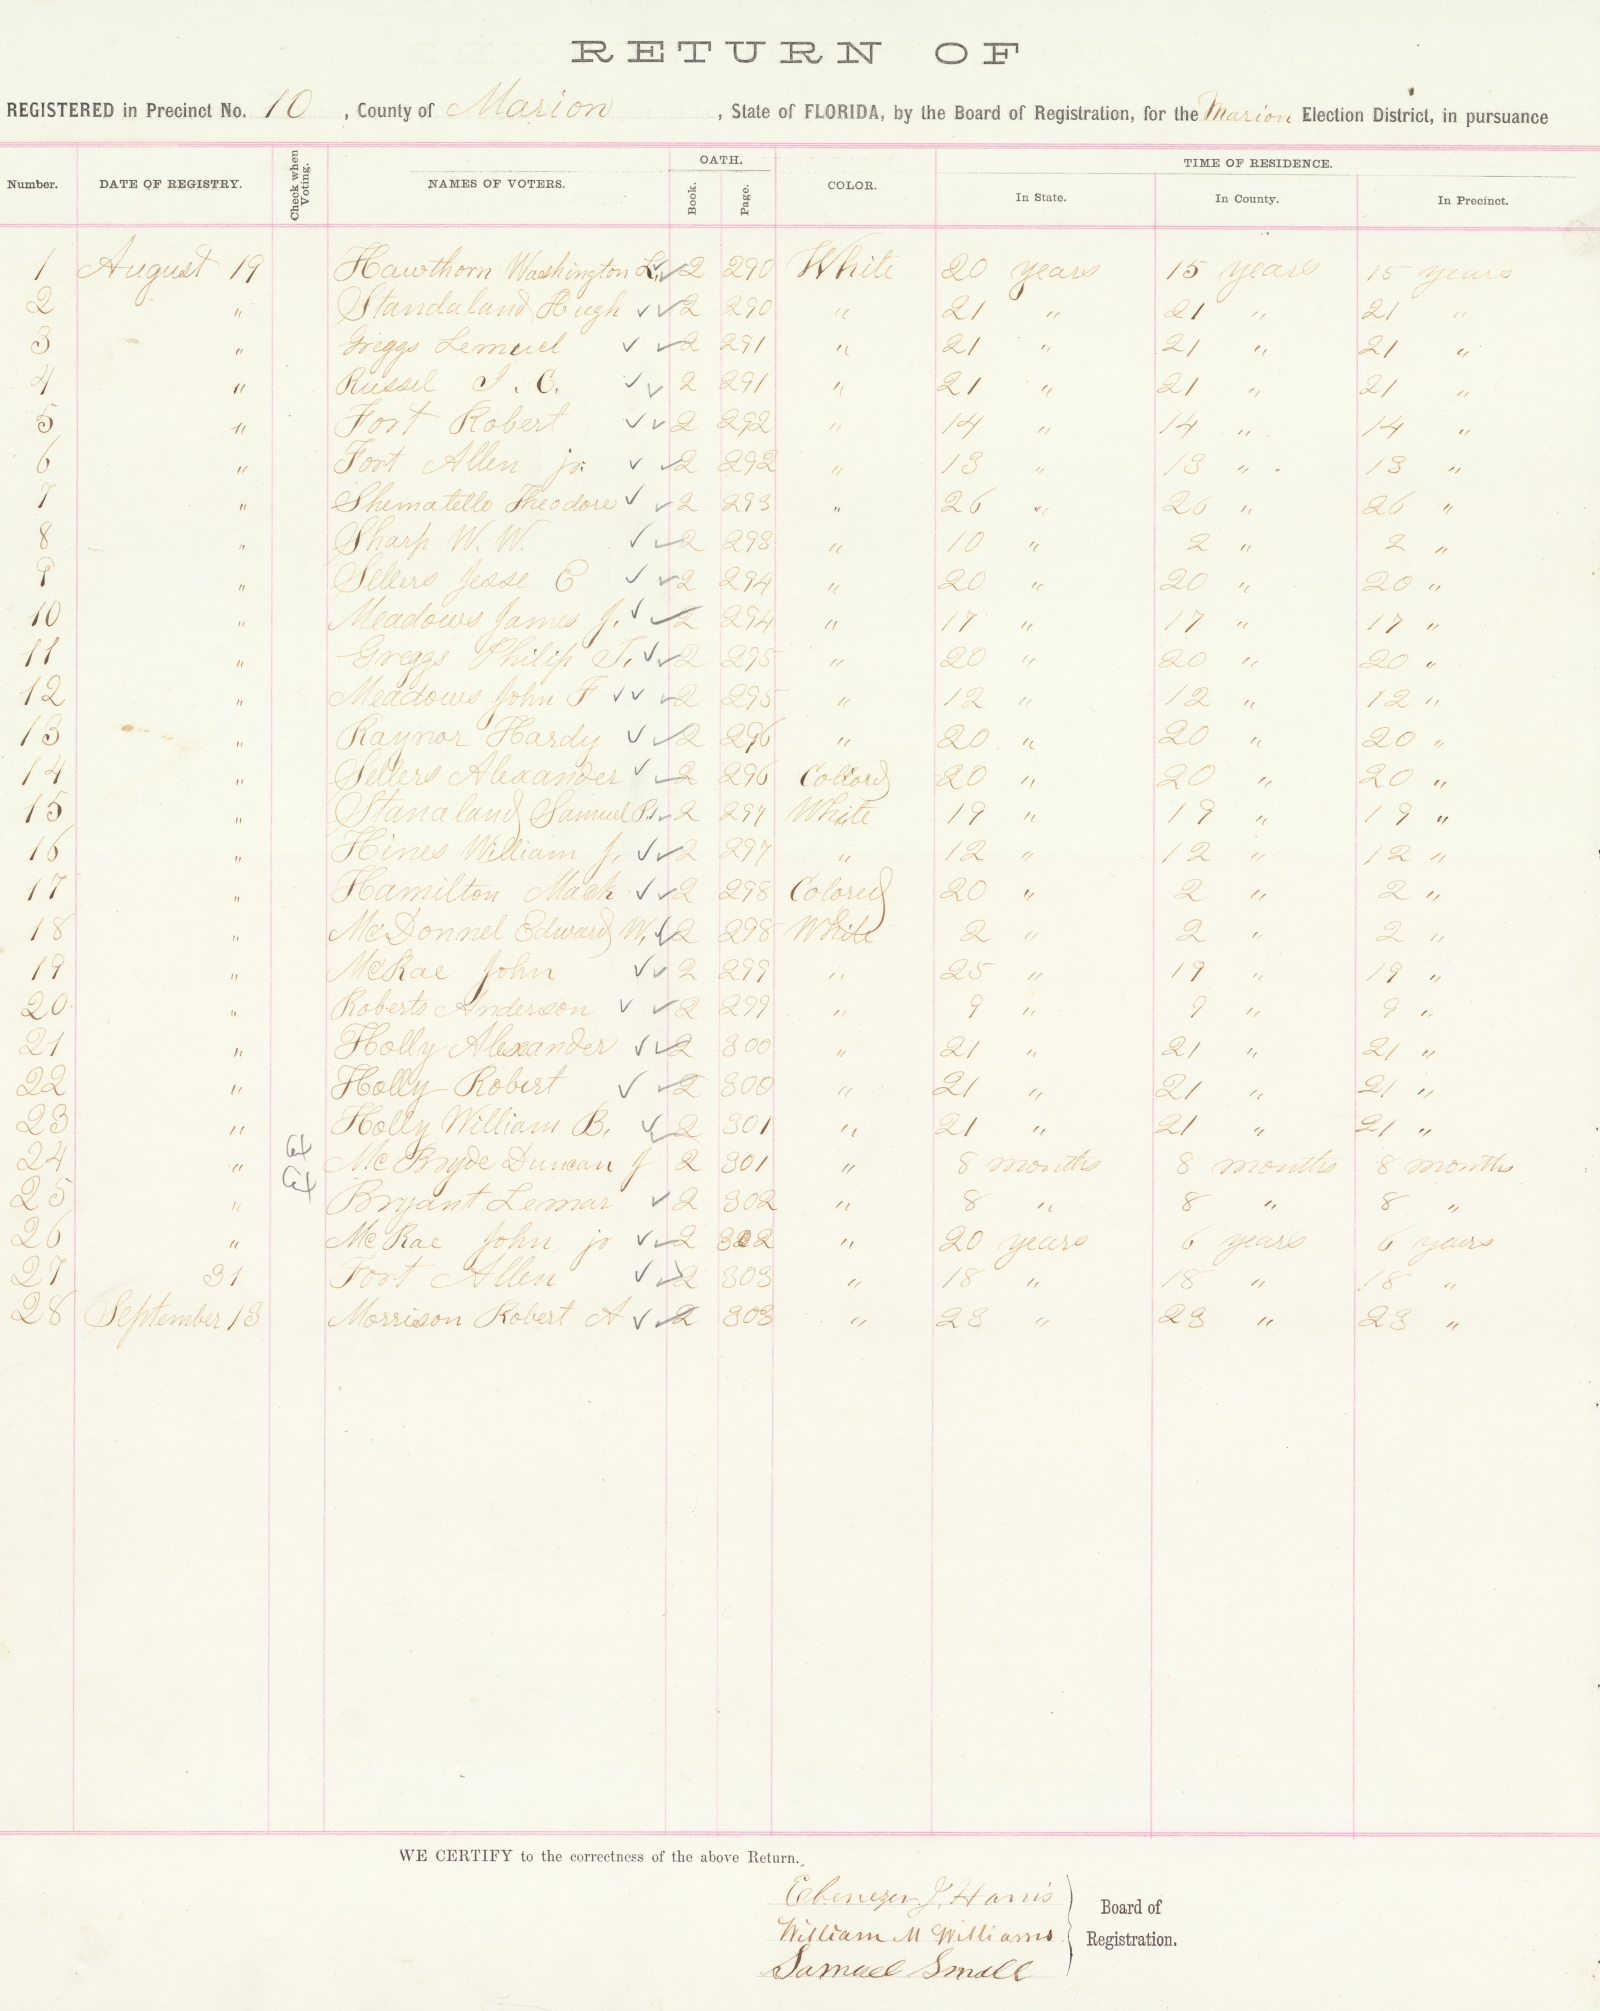 RETURN OF
REGISTERED in Precinct No. 10, County of Marion, State of FLORIDA, by the Board of Registration, for the Marion Election District, in pursuance
Number. DATE OF REGISTRY. Check when Voting. NAMES OF VOTERS. OATH. Book. Page. COLOR. TIME OF RESIDENCE. In State. In County. In Precinct.
1 August 19 Hawthorn Washington L. 2 290 White 20 years 15 years 15 years
2 " Standaland Hugh 2 290 " 21 " 21 " 21 "
3 " Griggs Lemuel 2 291 " 21 " 21 " 21 "
4 " Russel I. C. 2 291 " 21 " 21 " 21 "
5 " Fort Robert 2 292 " 14 " 14 " 14 "
6 " Fort Allen jr. 2 292 " 13 " 13 " 13 "
7 " Shematello Theodore 2 293 " 26 " 26 " 26 "
8 " Sharp W. W. 2 293 " 10 " 2 " 2 "
9 " Sellers Jesse C 2 294 " 20 " 20 " 20 "
10 " Meadows James J. 2 294 " 17 " 17 " 17 "
11 " Greggs Philip T. 2 295 " 20 " 20 " 20 "
12 " Meadows John F 2 295 " 12 " 12 " 12 "
13 " Raynor Hardy 2 296 " 20 " 20 " 20 "
14 " Sellers Alexander 2 296 Collord 20 " 20 " 20 "
15 " Stanaland Samuel 2 297 White 19 " 19 " 19 "
16 " Hines William J. 2 297 " 12 " 12 " 12 "
17 " Hamilton Mack 2 298 Colored 20 " 2 " 2 "
18 " McDonnel Edward W. 2 298 White 2 " 2 " 2 "
19 " McRae John 2 299 " 25 " 19 " 19 "
20 " Roberts Anderson 2 299 " 9 " 9 " 9 "
21 " Holly Alexander 2 300 " 21 " 21 " 21 "
22 " Holly Robert 2 300 " 21 " 21 " 21 "
23 " Holly William B. 2 301 " 21 " 21 " 21 "
24 " McBryde Duncan J 2 301 " 8 months 8 months 8 months
25 " Bryant Lemar 2 302 " 8 " 8 " 8 "
26 " McRae John jr 2 302 " 20 years 6 years 6 years
27 31 Fort Allen 2 303 " 18 " 18 " 18 "
28 September 13 Morrison Robert A 2 303 " 23 " 23 " 23 "
WE CERTIFY to the correctness of the above Return.
Ebenezer J. Harris
William M Williams
Samuel Small
Board of
Registration.